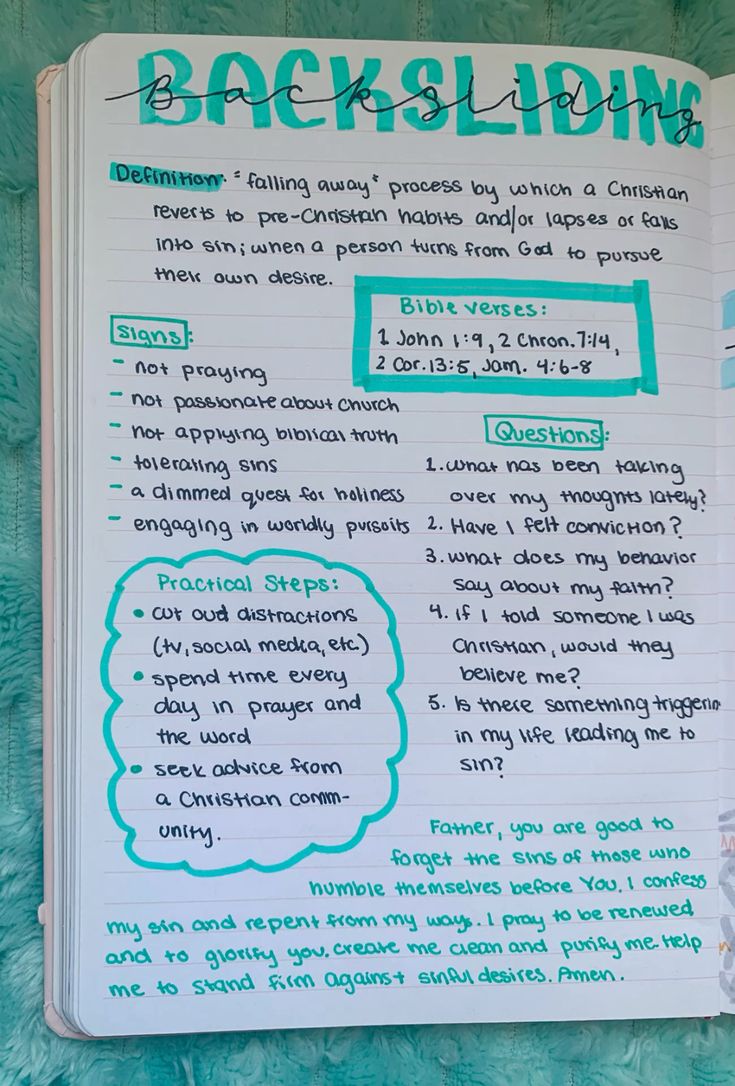 BACKSLIDING
Backsliding
Definition: "falling away" process by which a Christian
reverts to pre-Christian habits and/or lapses or falls
into sin; when a person turns from God to pursue
their own desire.
Bible verses:
1 John 1:9, 2 Chron. 7:14,
2 Cor. 13:5, Jam. 4:6-8
Signs:
- not praying
- not passionate about church
- not applying biblical truth
- tolerating sins
- a dimmed quest for holiness
- engaging in worldly pursuits
Questions:
1. what has been taking
over my thoughts lately?
2. Have I felt conviction?
3. what does my behavior
say about my faith?
4. if I told someone I was
Christian, would they
believe me?
5. Is there something triggerin
in my life leading me to
sin?
Practical Steps:
• cut oud distractions
(tv, social media, etc.)
• spend time every
day in prayer and
the word
• seek advice from
a Christian comm-
unity.
Father, you are good to
forget the sins of those who
humble themselves before You. I confess
my sin and repent from my ways. I pray to be renewed
and to glorify you. create me clean and purify me. Help
me to stand firm against sinful desires. Amen.